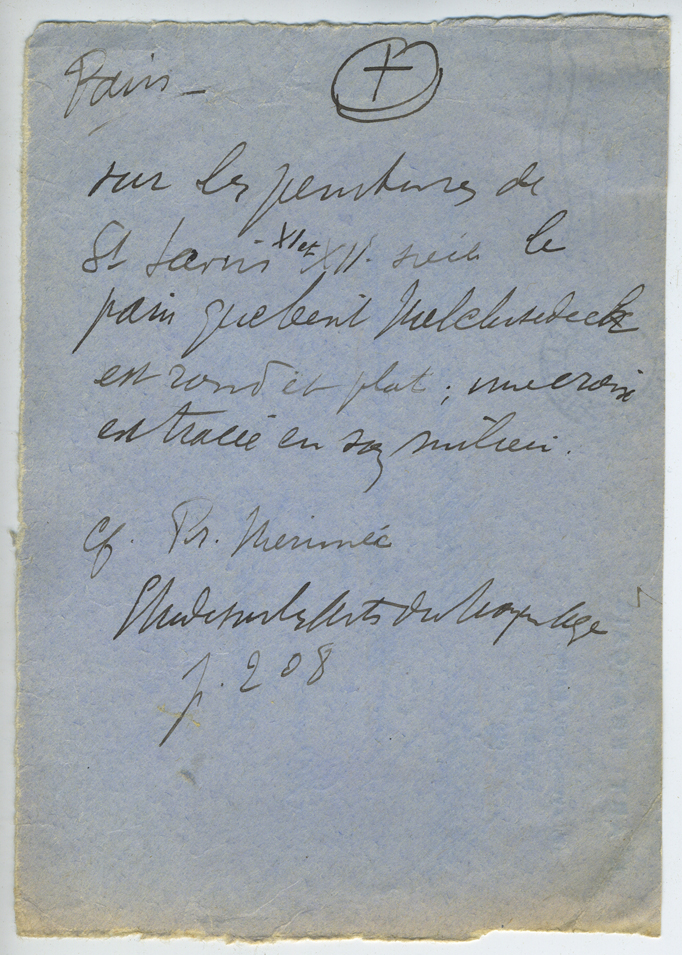 Pain –
sur les peintures de
St Savin XI et XII. siècle le
pain que bénit Melchisedeck
est rond et plat ; une croix
est tracée en son milieu.
cf. Pr. Merimée
Etudes sur les Arts du Moyen Age
p. 208